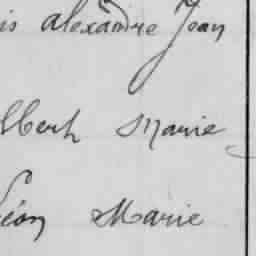 is alexandre Jean
lbert Marie
Léon Marie